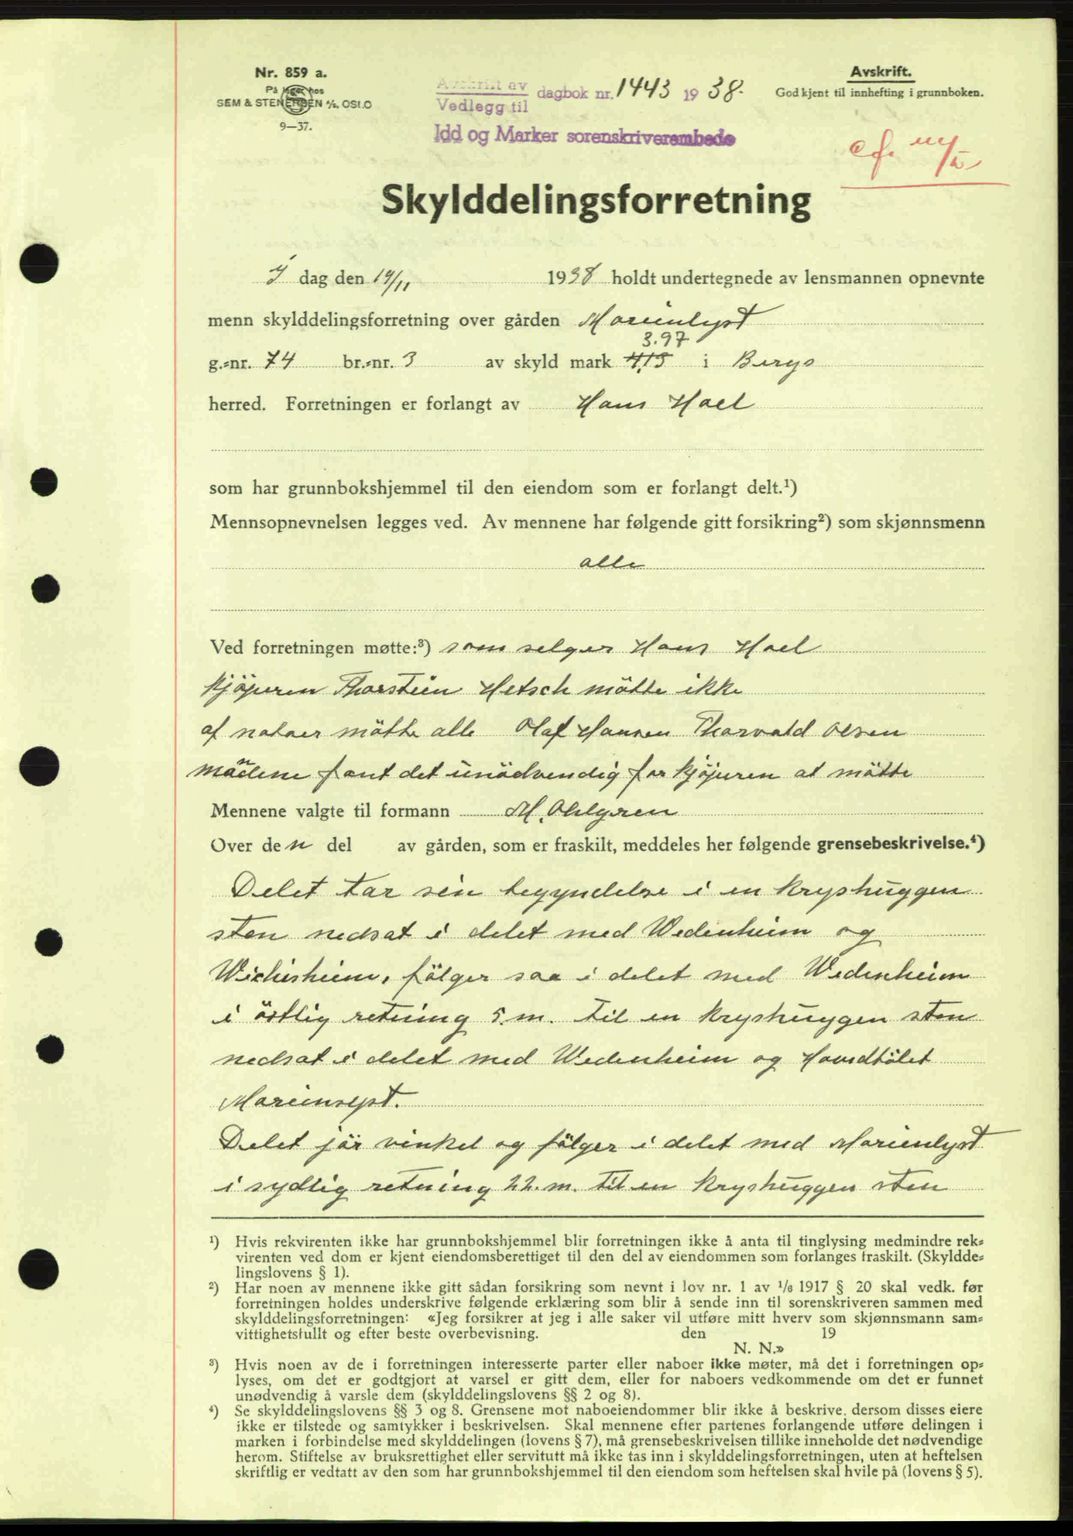 Nr. 859 a.
På lager hos
SEM & STENERSEN A/S, OSLO
9—37.
Avskrift av
Vedlegg til
dagbok nr. 1443 1938.
Idd og Marker sorenskriverembede
Avskrift.
Godkjent til innhefting i grunnboken.
Skylddelingsforretning
I dag den 19/11 1938 holdt undertegnede av lensmannen opnevnte
menn skylddelingsforretning over gården Marienlyst
3.97
g.=nr. 74 br.=nr. 3 av skyld mark 4,15 i Bergs
herred. Forretningen er forlangt av Hans Hoel
som har grunnbokshjemmel til den eiendom som er forlangt delt.¹)
Mennsopnevnelsen legges ved. Av mennene har følgende gitt forsikring²) som skjønnsmenn
alle
Ved forretningen møtte:³) som selger Hans Hoel
kjøperen Thorstein Hetsch mötte ikke
af naboer mötte alle Olaf Hansen Thorvald Olsen
mændene fant det unödvendig for kjøperen at mötte
Mennene valgte til formann M. Ohlgren
Over den del av gården, som er fraskilt, meddeles her følgende grensebeskrivelse.⁴)
Delet tar sin begyndelse i en kryshuggen
sten nedsat i delet med Wedenheim og
fölger saa i delet med Wedenheim
i östlig retning 5 m. til en kryshuggen sten
nedsat i delet med Wedenheim og Hovedbölet
Marienlyst.
Delet jör vinkel og fölger i delet med Marienlyst
i sydlig retning 22 m. til en kryshuggen sten
¹) Hvis rekvirenten ikke har grunnbokshjemmel blir forretningen ikke å anta til tinglysing medmindre rek=
virenten ved dom er kjent eiendomsberettiget til den del av eiendommen som forlanges fraskilt. (Skyldde=
lingslovens § 1).
²) Har noen av mennene ikke gitt sådan forsikring som nevnt i lov nr. 1 av ¹/₈ 1917 § 20 skal vedk. før
forretningen holdes underskrive følgende erklæring som blir å sende inn til sorenskriveren sammen med
skylddelingsforretningen: «Jeg forsikrer at jeg i alle saker vil utføre mitt hverv som skjønnsmann sam=
vittighetsfullt og efter beste overbevisning. den 19
N. N.»
³) Hvis noen av de i forretningen interesserte parter eller naboer ikke møter, må det i forretningen op=
lyses, om det er godtgjort at varsel er gitt dem, eller for naboers vedkommende om det er funnet
unødvendig å varsle dem (skylddelingslovens §§ 2 og 8).
⁴) Se skylddelingslovens §§ 3 og 8. Grensene mot naboeiendommer blir ikke å beskrive, dersom disses eiere
ikke er tilstede og samtykker i beskrivelsen. Skal mennene efter partenes forlangende utføre delingen i
marken i forbindelse med skylddelingen (lovens § 7), må grensebeskrivelsen tillike inneholde det nødvendige
herom. Stiftelse av bruksrettighet eller servitutt må ikke tas inn i skylddelingsforretningen, uten at heftelsen
skriftlig er vedtatt av den som har grunnbokshjemmel til den eiendom som heftelsen skal hvile på (lovens § 5).